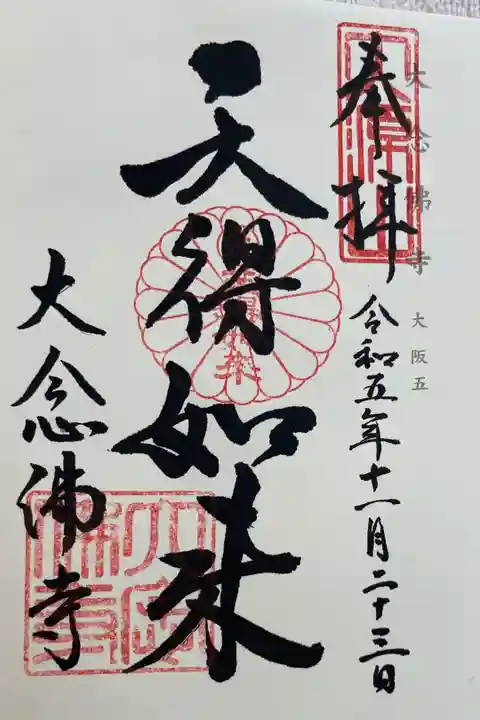 大念佛寺 大阪五
奉拝 令和五年十一月二十三日
天得如来
大念佛寺
大念
佛寺